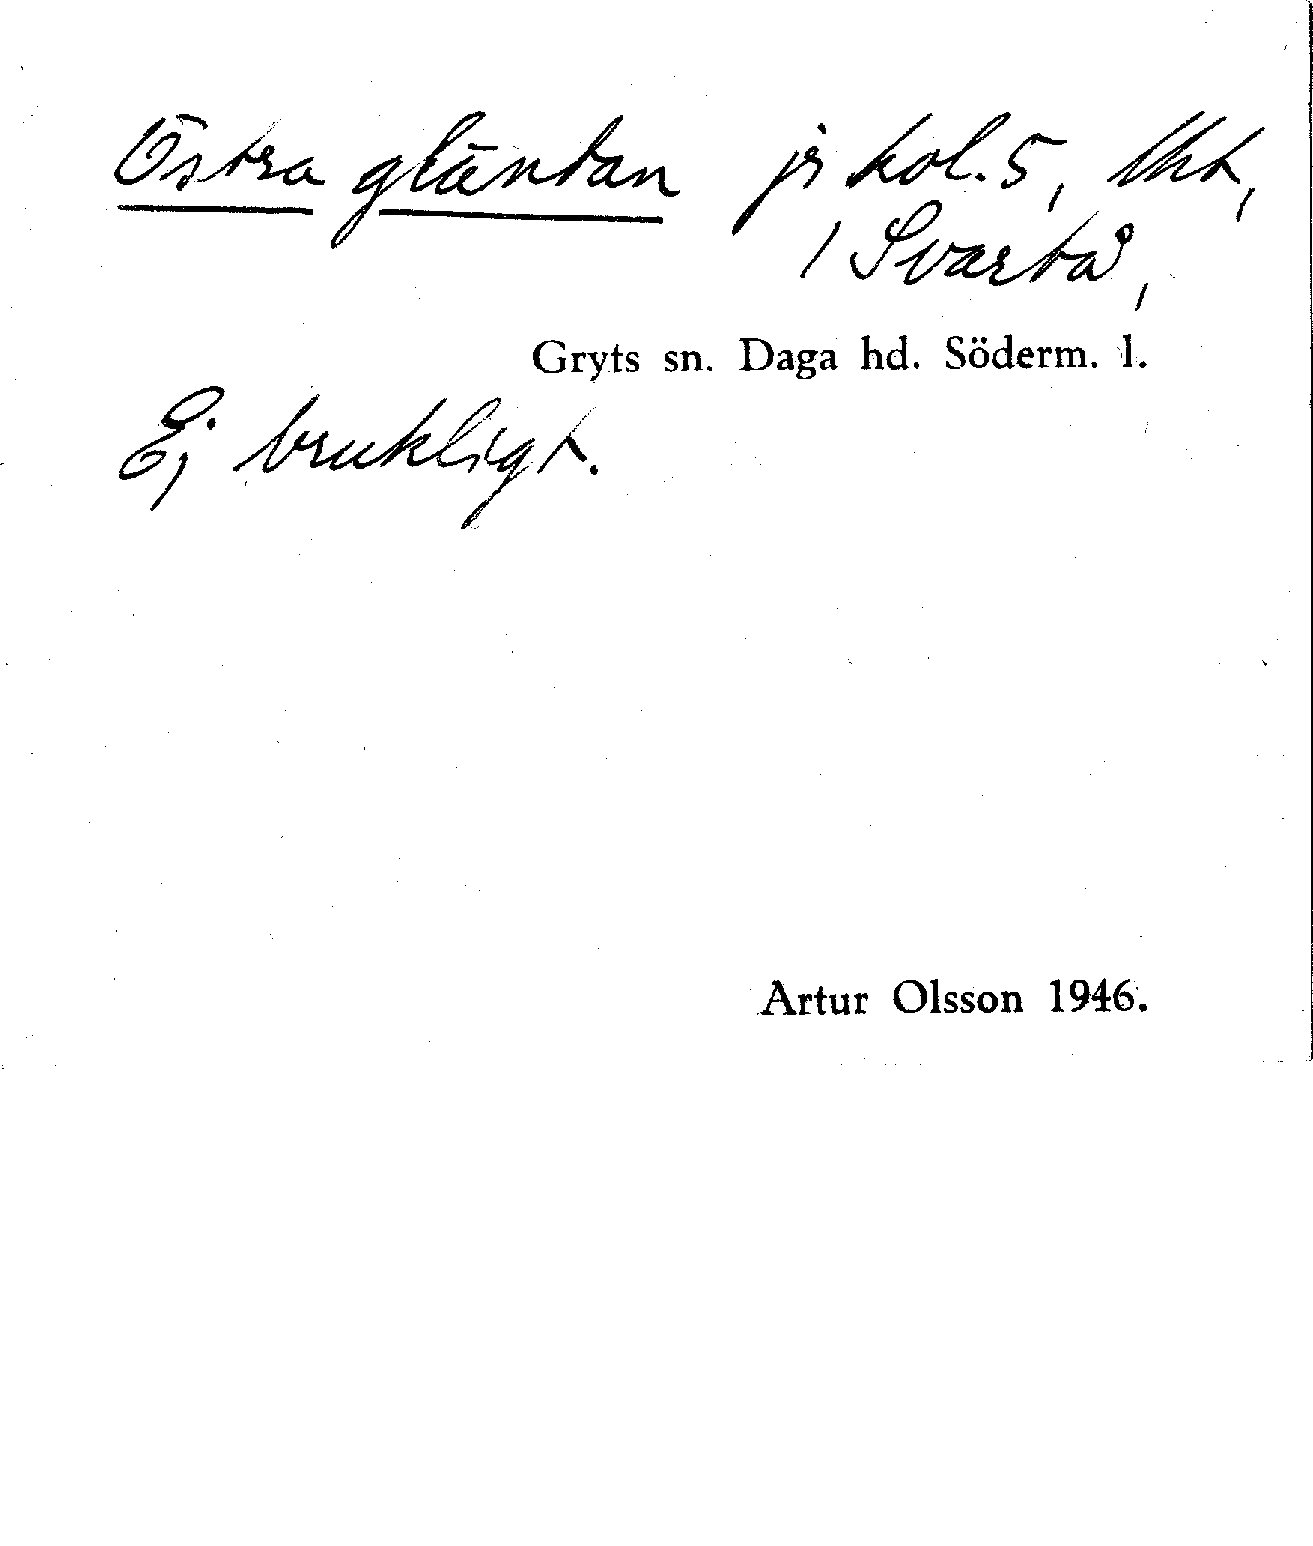 Östra gläntan jr kol. 5, Ukt,
1 Svartå,
Gryts sn. Daga hd. Söderm. l.
Ej brukligt.
Artur Olsson 1946.